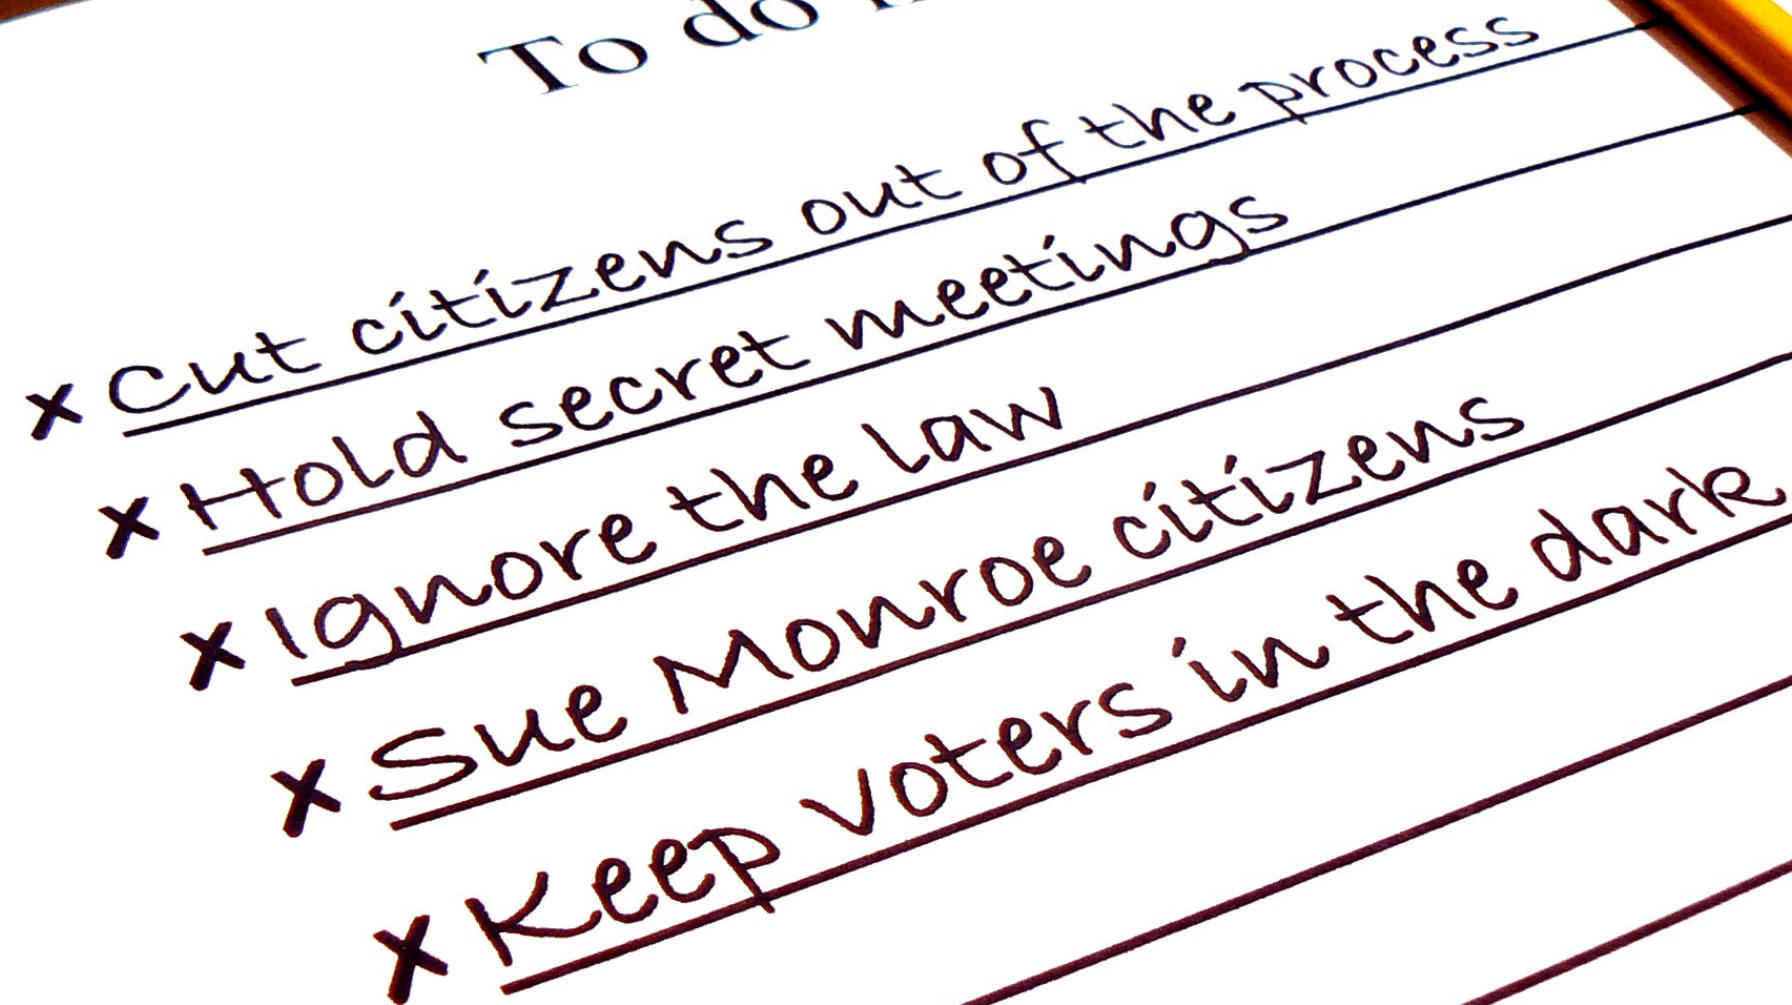 To do
× Cut citizens out of the process
× Hold secret meetings
× Ignore the law
× Sue Monroe citizens
× Keep voters in the dark